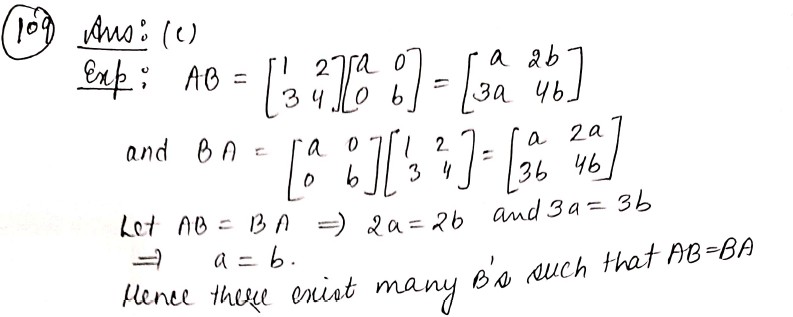 109 Ans: (c)
Exp: AB = [1 2 3 4][a 0 0 b] = [a 2b 3a 4b]
and BA = [a 0 0 b][1 2 3 4] = [a 2a 3b 4b]
Let AB = BA ⇒ 2a = 2b and 3a = 3b
⇒ a = b.
Hence there exist many B's such that AB=BA